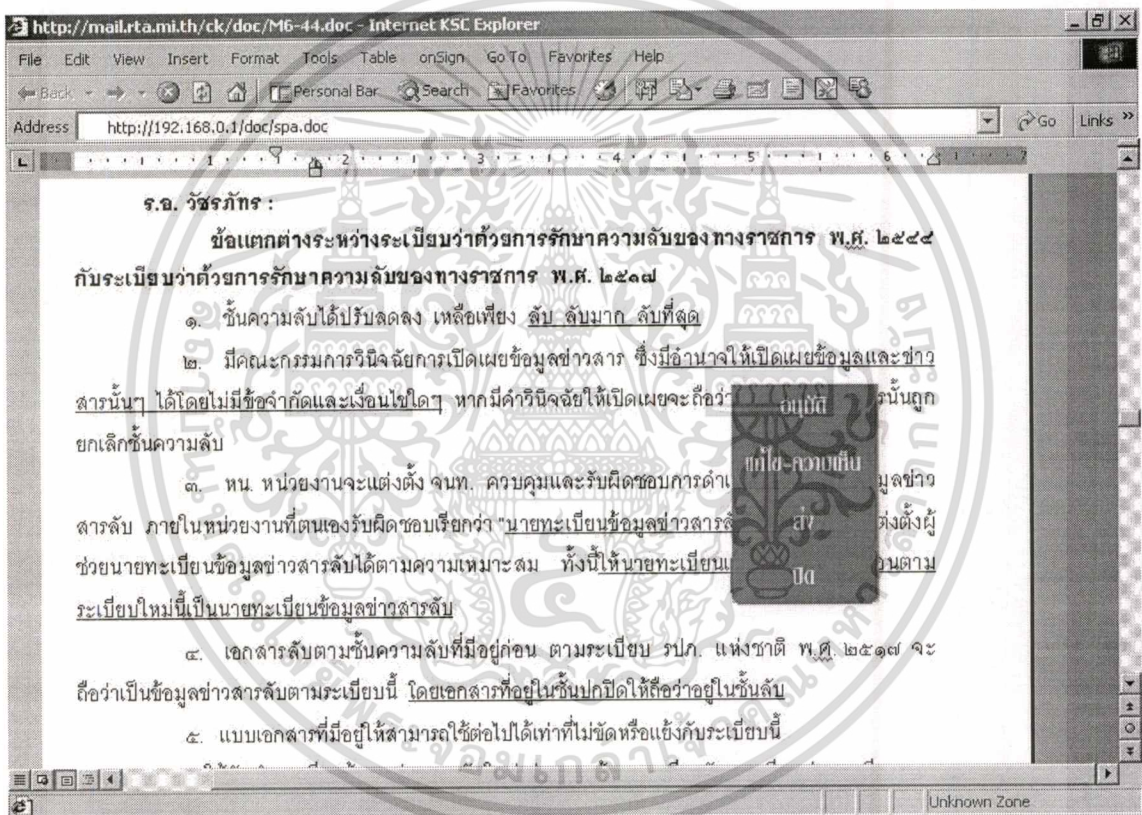 http://mail.rta.mi.th/ck/doc/M6-44.doc - Internet KSC Explorer
File Edit View Insert Format Tools Table onSign Go To Favorites Help
Back Personal Bar Search Favorites
Address http://192.168.0.1/doc/spa.doc Go Links »
1 2 3 4 5 6 7
ร.อ. วัชรภัทร :
ข้อแตกต่างระหว่างระเบียบว่าด้วยการรักษาความลับของทางราชการ พ.ศ. ๒๕๔๔
กับระเบียบว่าด้วยการรักษาความลับของทางราชการ พ.ศ. ๒๕๑๗
๑. ชั้นความลับได้ปรับลดลง เหลือเพียง ลับ ลับมาก ลับที่สุด
๒. มีคณะกรรมการวินิจฉัยการเปิดเผยข้อมูลข่าวสาร ซึ่งมีอำนาจให้เปิดเผยข้อมูลและข่าว
สารนั้นๆ ได้โดยไม่มีข้อจำกัดและเงื่อนไขใดๆ หากมีคำวินิจฉัยให้เปิดเผยจะถือว่า รนั้นถูก
ยกเลิกชั้นความลับ
๓. หน. หน่วยงานจะแต่งตั้ง จนท. ควบคุมและรับผิดชอบการดำเ มูลข่าว
สารลับ ภายในหน่วยงานที่ตนเองรับผิดชอบเรียกว่า "นายทะเบียนข้อมูลข่าวสารลั ต่งตั้งผู้
ช่วยนายทะเบียนข้อมูลข่าวสารลับได้ตามความเหมาะสม ทั้งนี้ให้นายทะเบียนเ อนตาม
ระเบียบใหม่นี้เป็นนายทะเบียนข้อมูลข่าวสารลับ
อนุมัติ
แก้ไข-ความเห็น
ส่ง
ปิด
๔. เอกสารลับตามชั้นความลับที่มีอยู่ก่อน ตามระเบียบ รปภ. แห่งชาติ พ.ศ. ๒๕๑๗ จะ
ถือว่าเป็นข้อมูลข่าวสารลับตามระเบียบนี้ โดยเอกสารที่อยู่ในชั้นปกปิดให้ถือว่าอยู่ในชั้นลับ
๕. แบบเอกสารที่มีอยู่ให้สามารถใช้ต่อไปได้เท่าที่ไม่ขัดหรือแย้งกับระเบียบนี้
Unknown Zone